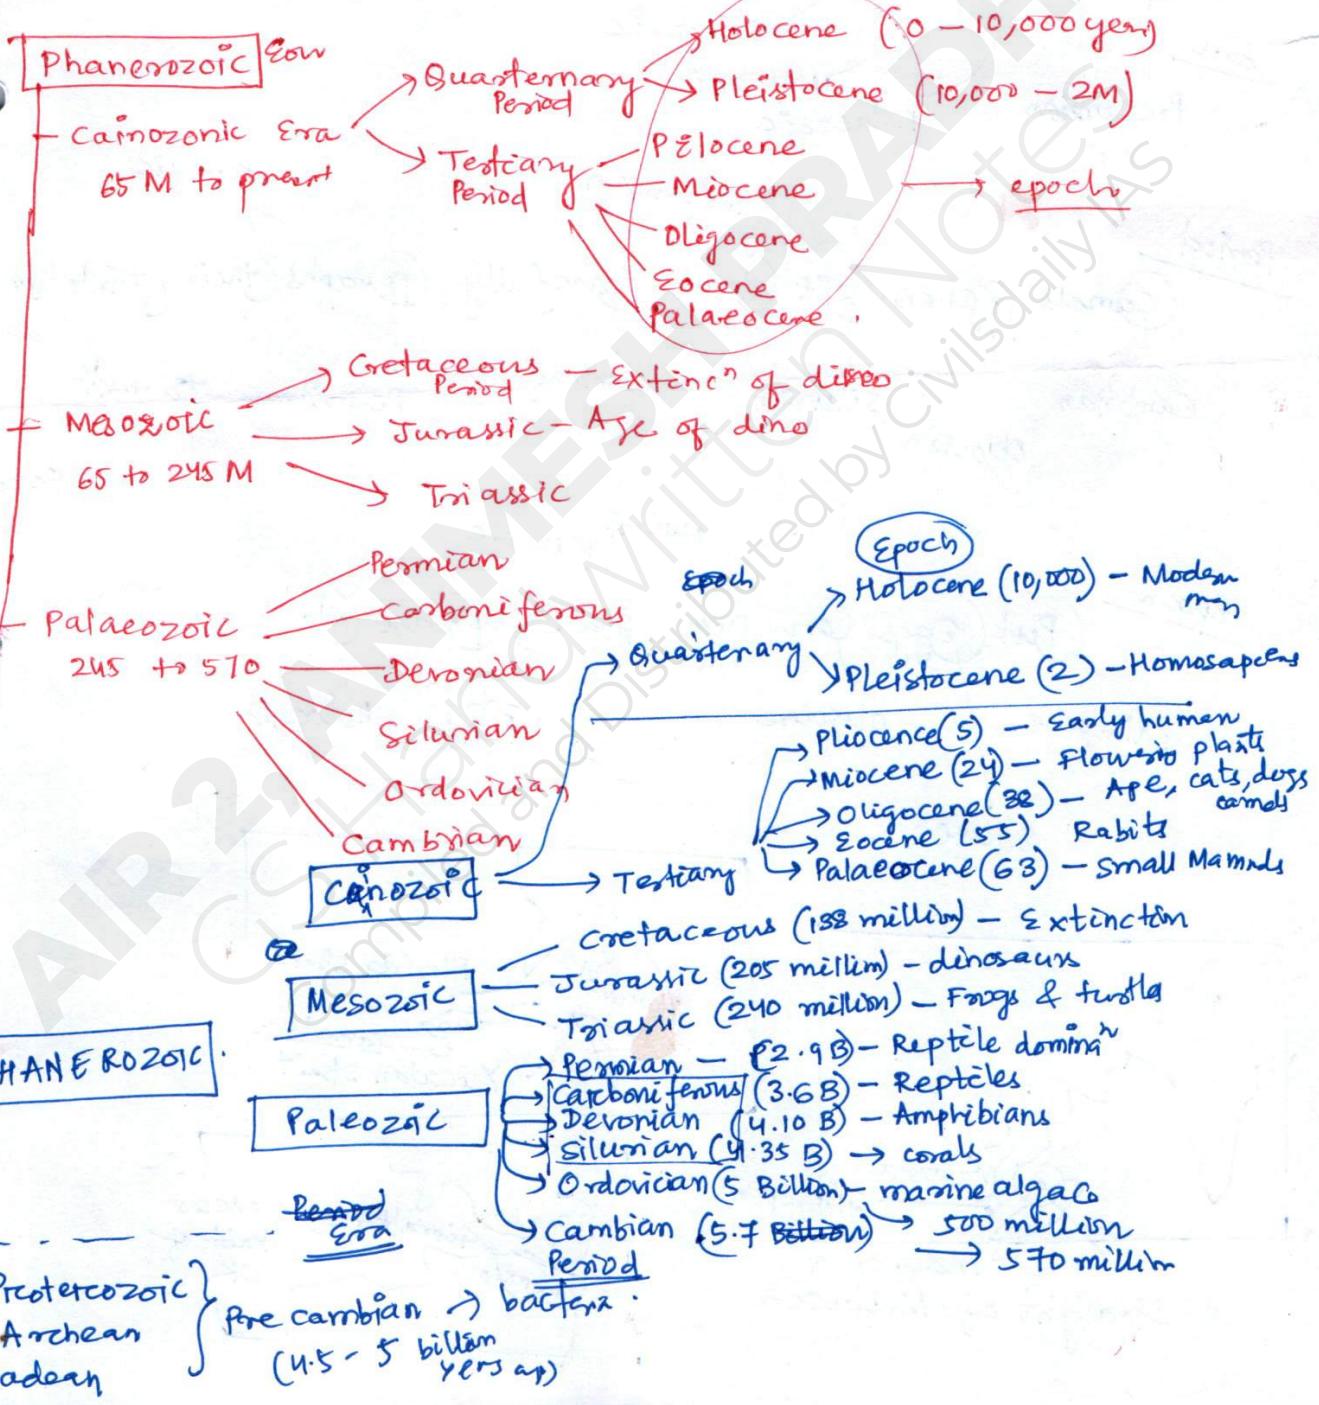 Phanerozoic Eon
Cainozonic Era
65 M to present
Quarternary
Period
Tertiary
Period
Holocene (0 – 10,000 yers)
Pleistocene (10,000 – 2M)
Pilocene
Miocene
Oligocene
Eocene
Palaeocene .
→ epoch
Mesozoic
65 to 245 M
Cretaceous – Extincn of dino
Period
Jurassic – Age of dino
Triassic
Palaeozoic
245 to 570
Permian
Carboniferous
Devonian
Silurian
Ordovician
Cambrian
Epoch
Epoch
Quarternary
Holocene (10,000) – Modern
man
Pleistocene (2) – Homosapiens
Pliocence (5) – Early human
Miocene (24) – Flowerin plants
Oligocene (38) – Ape, cats, dogs
camels
Eocene (55) Rabits
Palaeocene (63) – Small Mammals
Cainozoic → Tertiary
Mesozoic
Cretaceous (138 million) – Extinction
Jurassic (205 million) – dinosaurs
Triassic (240 million) – Frogs & turtles
HANEROZOIC
Paleozoic
Permian – (2.9 B) – Reptile dominan
Carboniferous (3.6 B) – Reptiles
Devonian (4.10 B) – Amphibians
Silurian (4.35 B) → corals
Ordovician (5 Billion) – marine algae
→ 500 million
Cambian (5.7 Billion)
→ 570 million
Period
Era
Period
Proterozoic
Archean
adean
Pre cambian → bacteria .
(4.5 – 5 billion
yers ago)
AIR 2, ANIMESH PRADH
GS Handwritten Notes
Compiled and Distributed by Civilsdaily IAS